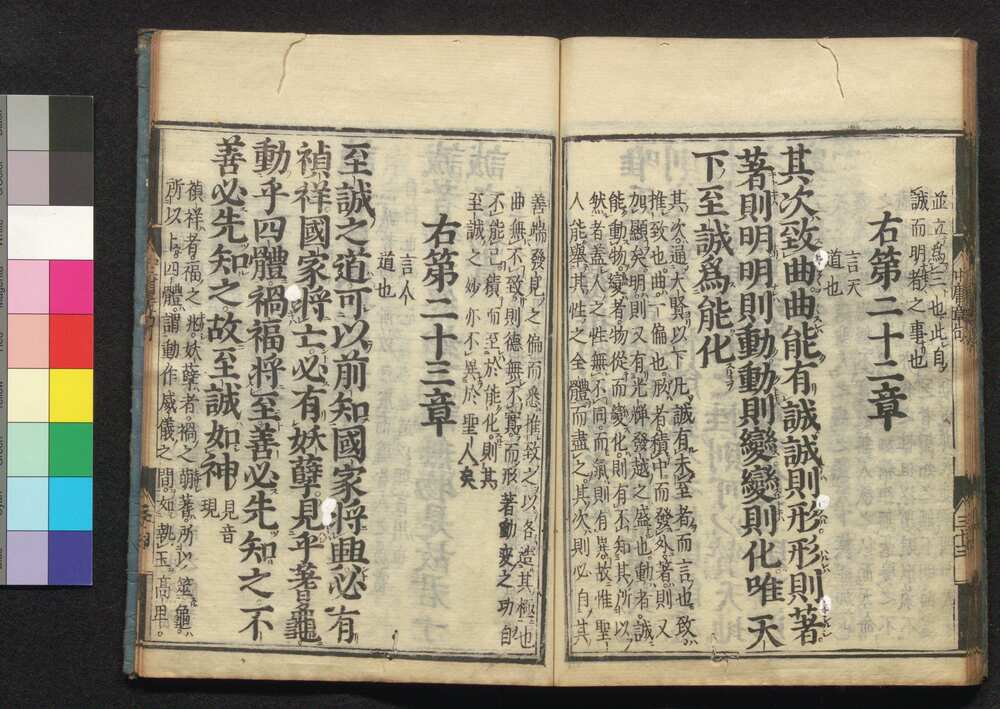 並立爲三也此自
誠而明者之事也
右第二十二章
言天
道也
其次致曲曲能有誠誠則形形則著
著則明明則動動則變變則化唯天
下至誠爲能化
其次通大賢以下凡誠有未至者而言也致
推致也曲一偏也形者積中而發外著則又
加顯矣明則又有光輝發越之盛也動者誠
能動物變者物從而變化則有不知其所以
然者蓋人之性無不同而氣則有異故惟聖
人能舉其性之全體而盡之其次則必自其
善端發見之偏而悉推致之以各造其極也
曲無不致則德無不實而形著動變之功自
不能已積而至於能化則其
至誠之妙亦不異於聖人矣
右第二十三章
言人
道也
至誠之道可以前知國家將興必有
禎祥國家將亡必有妖孽見乎蓍龜
動乎四體禍福將至善必先知之不
善必先知之故至誠如神
見音
現
禎祥者福之兆妖孽者禍之萌蓍所以筮龜
所以卜四體謂動作威儀之間如執玉高卑